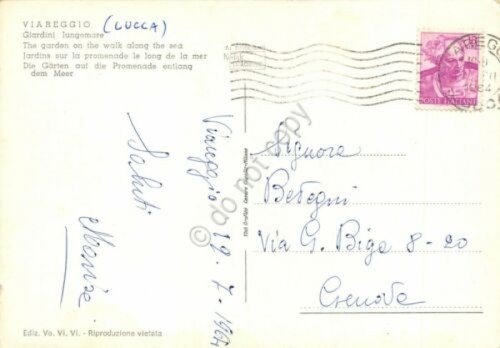 VIAREGGIO (LUCCA)
Giardini lungomare
The garden on the walk along the sea
Jardins sur la promenade le long de la mer
Die Gärten auf die Promenade entlang
dem Meer
POSTE ITALIANE
Viareggio 19-7-1964
Saluti
Signora
Via G. Biga 8-20
Genova
Ediz. Vo. Vi. Vi. - Riproduzione vietata
© do not copy